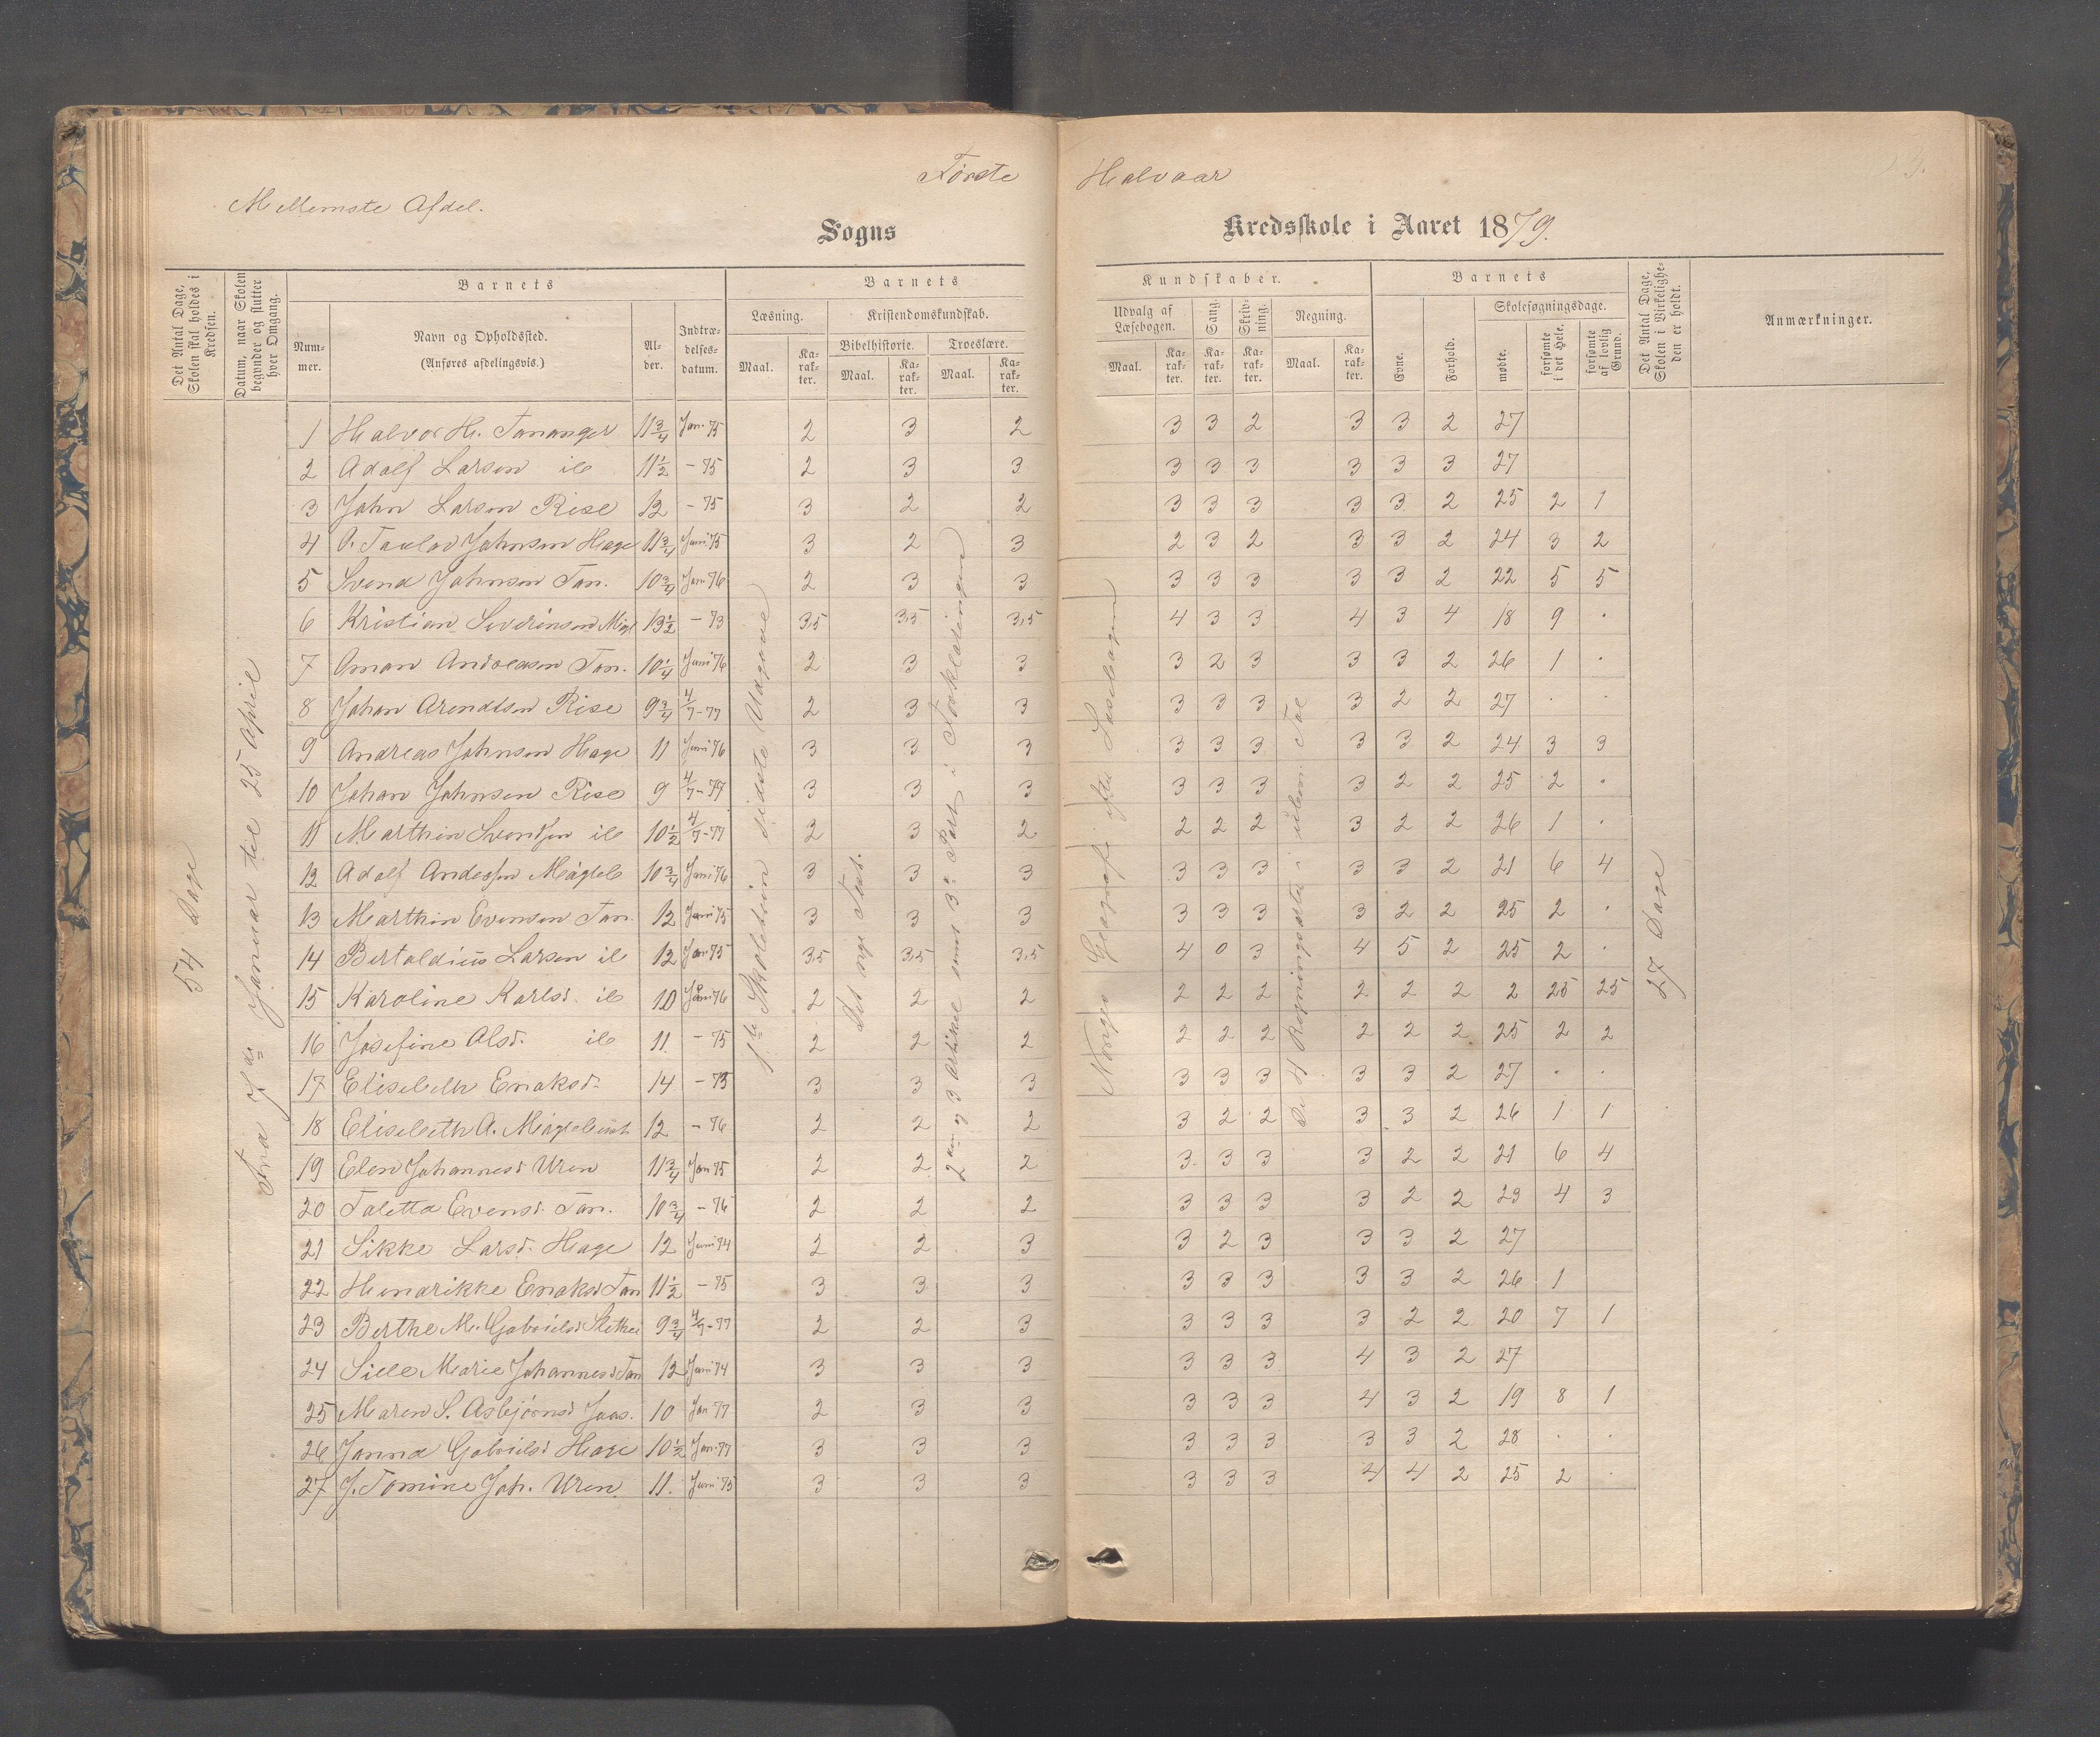 Første Halvaar
Mellemste Afdel.
Sogns Kredsskole i Aaret 1879.
Det Antal Dage, Skolen skal holdes i Kredsen.
Datum, naar Skolen begynder og slutter hver Omgang.
Barnets
Num-mer.
Navn og Opholdssted. (Anføres afdelingsvis.)
Al-der.
Indtræ-delses-datum.
Barnets Kundskaber.
Læsning.
Maal.
Ka-rak-ter.
Kristendomskundskab.
Bibelhistorie.
Maal.
Ka-rak-ter.
Troeslære.
Maal.
Ka-rak-ter.
Udvalg af Læsebogen.
Maal.
Ka-rak-ter.
Sang.
Ka-rak-ter.
Skriv-ning.
Ka-rak-ter.
Regning.
Maal.
Ka-rak-ter.
Barnets
Evne.
Forhold.
Skolesøgningsdage.
mødte.
forsømte i det Hele.
forsømte af lovlig Grund.
Det Antal Dage, Skolen i Virkelighe-den er holdt.
Anmærkninger.
54 Dage
Fra 7de Januar til 25 April
1ste Skoletrin sidste Udgave
Det nye Test.
2den og 3 Artikel samt 3die Part i Forklaringen
Norges Geografi efter Læsebogen
De 4 Regningsarter i ubен. Tal
27 Dage
1 Halvor H. Tananger 11 3/4 Jan 75 2 3 2 3 3 2 3 3 2 27
2 Adolf Larsen ib 11 1/2 - 75 2 3 3 3 3 3 3 3 3 27
3 John Larsen Rise 12 - 75 3 2 2 3 3 3 3 3 2 25 2 1
4 O. Taulov Johnsen Hage 11 3/4 Juni 75 3 2 3 2 3 2 3 3 2 24 3 2
5 Svend Johnsen Tan. 10 3/4 Jan 76 2 3 3 3 3 3 3 3 2 22 5 5
6 Kristian Severinsen Migl 13 1/2 - 73 3,5 3,5 3,5 4 3 3 4 3 4 18 9 .
7 Oman Andreasen Tan. 10 1/4 Juni 76 2 3 3 3 2 3 3 3 2 26 1 .
8 Johan Arendtsen Rise 9 3/4 4/7-77 2 3 3 3 3 3 3 2 2 27 . .
9 Andreas Johnsen Hage 11 Juni 76 3 3 3 3 3 3 3 3 2 24 3 3
10 Johan Johnsen Rise 9 4/7-77 3 3 3 3 3 3 3 2 2 25 2 .
11 Marthin Svendsen ib 10 1/2 4/7-77 2 3 2 2 2 2 3 2 2 26 1 .
12 Adolf Andersen Migleb 10 3/4 Juni 76 3 3 3 3 3 3 3 3 2 21 6 4
13 Marthin Evensen Tan. 12 Juni 75 3 3 3 3 3 3 3 2 2 25 2 .
14 Bertoldius Larsen ib 12 Jan 75 3,5 3,5 3,5 4 0 3 4 5 2 25 2 .
15 Karoline Karlsd. ib 10 Juni 76 2 2 2 2 2 2 2 2 2 2 25 25
16 Josefine Olsd. ib 11. - 75 2 2 2 2 2 2 2 2 2 25 2 2
17 Elisebeth Enoksd. 14 - 73 3 3 3 3 3 3 3 3 2 27 . .
18 Elisebeth A. Miglebust 12 - 76 2 2 2 3 2 2 3 3 2 26 1 1
19 Elen Johannesd Uren 11 3/4 Jan 75 2 2 2 3 3 3 3 2 2 21 6 4
20 Taletta Evensd. Tan. 10 3/4 - 76 2 2 2 3 3 3 3 2 2 23 4 3
21 Sikke Larsd. Hage 12 Juni 74 2 2 3 3 2 3 3 3 2 27
22 Henrikke Enoksd Tan 11 1/2 - 75 3 3 3 3 3 3 3 3 2 26 1
23 Berthe M. Gabrielsd 9 3/4 4/7-77 2 2 3 3 3 3 3 2 2 20 7 1
24 Sille Marie Johannesd Tan 12 Juni 74 3 3 3 3 3 3 4 3 2 27
25 Maren S. Asbjørnsd Jaas. 10 Jan 77 2 3 3 3 3 3 4 3 2 19 8 1
26 Janna Gabrielsd Hage 10 1/2 Jan 77 3 3 3 3 3 3 3 3 2 28 . .
27 J. Tomine Joh. Uren 11. Juni 75 3 3 3 3 3 3 4 4 2 25 2 .